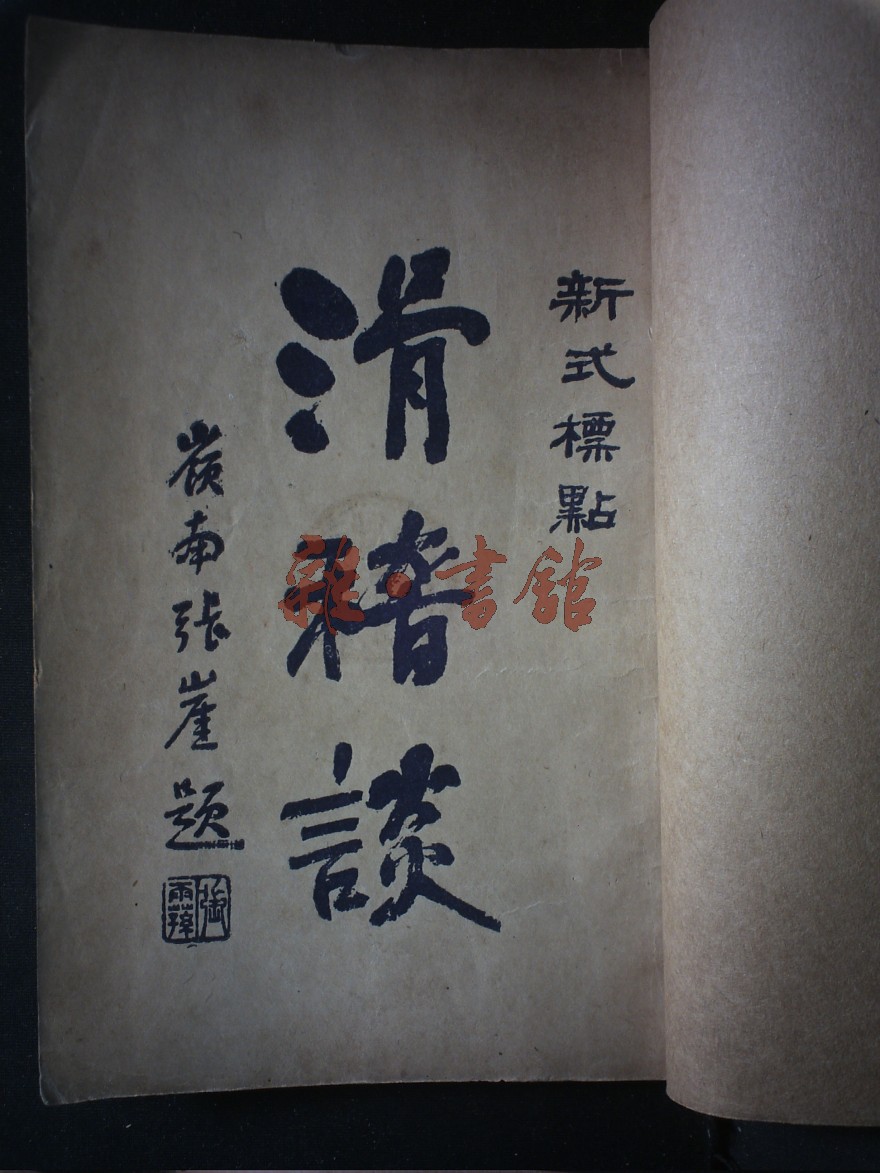 新式標點
滑稽談
嶺南張崖題
雜·書館